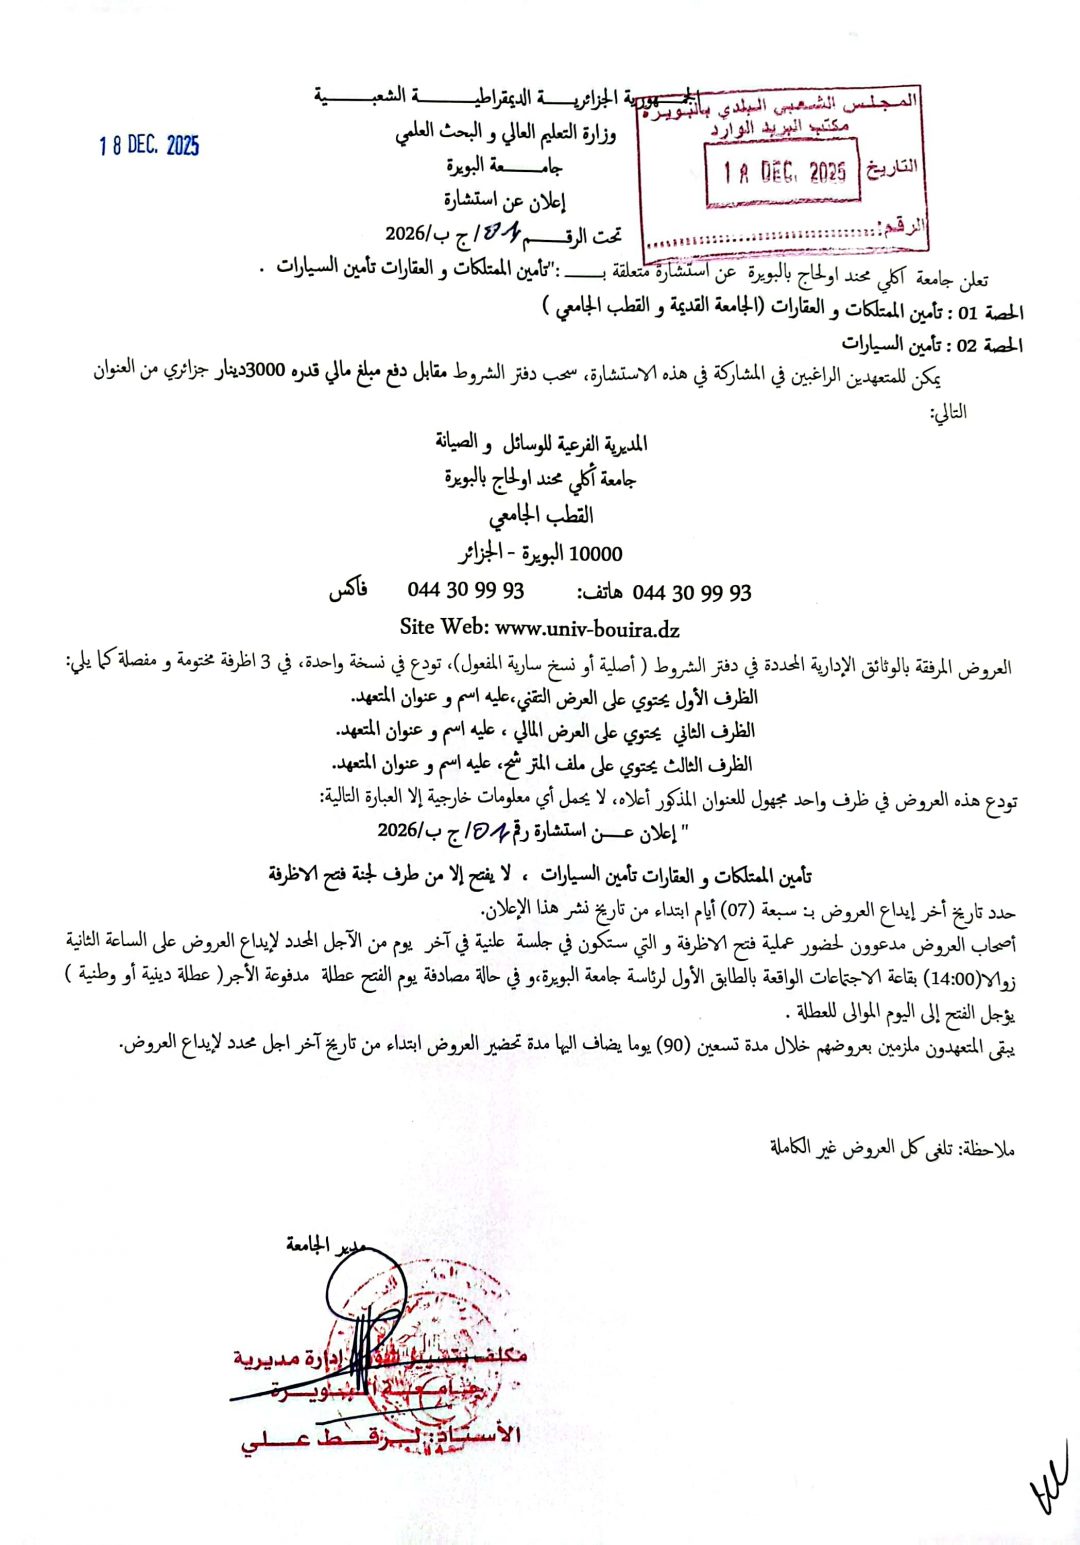 الجمهورية الجزائرية الديمقراطية الشعبية
المجلس الشعبي البلدي بالبويرة
مكتب البريد الوارد
التاريخ 18 DEC. 2025
الرقم:
18 DEC. 2025
وزارة التعليم العالي و البحث العلمي
جامعة البويرة
إعلان عن استشارة
تحت الرقم 01/ ج ب/2026
تعلن جامعة أكلي محند اولحاج بالبويرة عن استشارة متعلقة بـ :"تأمين الممتلكات و العقارات تأمين السيارات .
الحصة 01 : تأمين الممتلكات و العقارات (الجامعة القديمة و القطب الجامعي )
الحصة 02 : تأمين السيارات
يمكن للمتعهدين الراغبين في المشاركة في هذه الاستشارة، سحب دفتر الشروط مقابل دفع مبلغ مالي قدره 3000دينار جزائري من العنوان
التالي:
المديرية الفرعية للوسائل و الصيانة
جامعة أكلي محند اولحاج بالبويرة
القطب الجامعي
10000 البويرة - الجزائر
044 30 99 93 هاتف: 044 30 99 93 فاكس
Site Web: www.univ-bouira.dz
العروض المرفقة بالوثائق الإدارية المحددة في دفتر الشروط ( أصلية أو نسخ سارية المفعول)، تودع في نسخة واحدة، في 3 اظرفة مختومة و مفصلة كما يلي:
الظرف الأول يحتوي على العرض التقني،عليه اسم و عنوان المتعهد.
الظرف الثاني يحتوي على العرض المالي ، عليه اسم و عنوان المتعهد.
الظرف الثالث يحتوي على ملف المترشح، عليه اسم و عنوان المتعهد.
تودع هذه العروض في ظرف واحد مجهول للعنوان المذكور أعلاه، لا يحمل أي معلومات خارجية إلا العبارة التالية:
" إعلان عن استشارة رقم 01/ ج ب/2026
تأمين الممتلكات و العقارات تأمين السيارات ، لا يفتح إلا من طرف لجنة فتح الاظرفة
حدد تاريخ أخر إيداع العروض بـ: سبعة (07) أيام ابتداء من تاريخ نشر هذا الإعلان.
أصحاب العروض مدعوون لحضور عملية فتح الاظرفة و التي ستكون في جلسة علنية في آخر يوم من الآجل المحدد لإيداع العروض على الساعة الثانية
زوالا(14:00) بقاعة الاجتماعات الواقعة بالطابق الأول لرئاسة جامعة البويرة،و في حالة مصادفة يوم الفتح عطلة مدفوعة الأجر( عطلة دينية أو وطنية )
يؤجل الفتح إلى اليوم الموالى للعطلة .
يبقى المتعهدون ملزمين بعروضهم خلال مدة تسعين (90) يوما يضاف اليها مدة تحضير العروض ابتداء من تاريخ آخر اجل محدد لإيداع العروض.
ملاحظة: تلغى كل العروض غير الكاملة
مدير الجامعة
مكلف بتسيير شؤون إدارة مديرية
جامعة البويرة
الأستاذ: لرقط علي